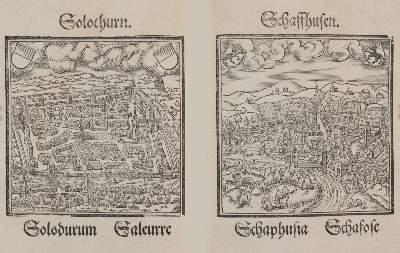 Solothurn.
Solodurum Saleurre
Schaffhusen.
Schaphusia Schafose